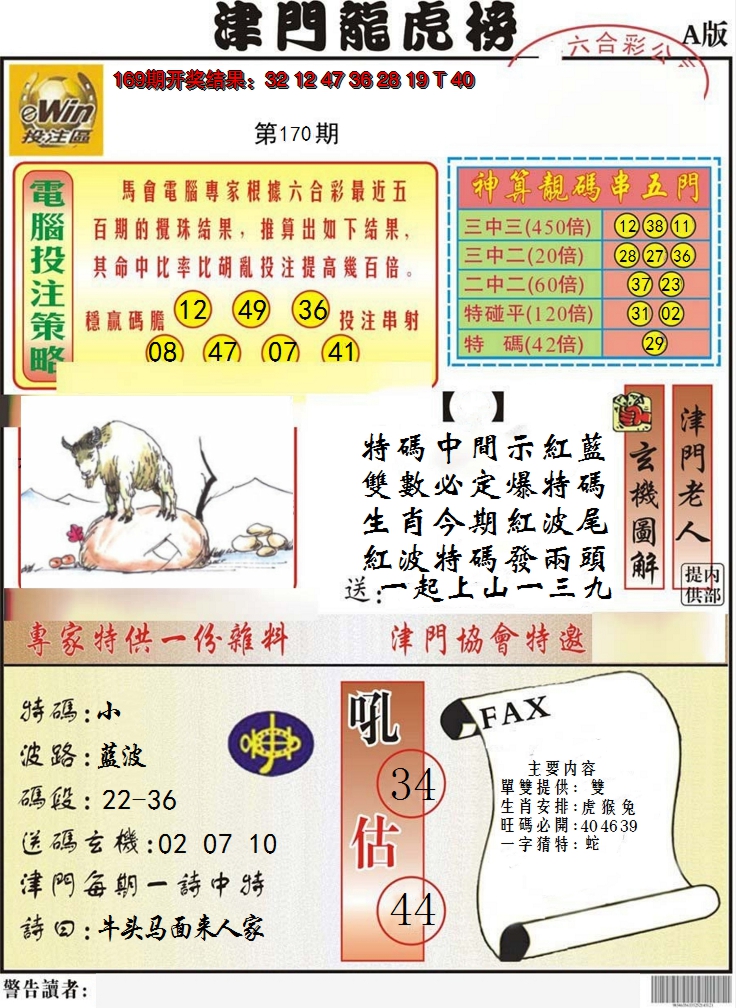 津門龍虎榜
六合彩公司
A版
169期开奖结果：32 12 47 36 28 19 T 40
eWin
投注區
第170期
電腦投注策略
馬會電腦專家根據六合彩最近五
百期的攪珠结果，推算出如下结果，
其命中比率比胡亂投注提高幾百倍。
穩贏碼膽 12 49 36 投注串射
08 47 07 41
神算靚碼串五門
三中三(450倍) 12 38 11
三中二(20倍) 28 27 36
二中二(60倍) 37 23
特碰平(120倍) 31 02
特 碼(42倍) 29
【 】
特碼中間示紅藍
雙數必定爆特碼
生肖今期紅波尾
紅波特碼發兩頭
送：一起上山一三九
玄機圖解
津門老人
内部提供
專家特供一份雜料
津門協會特邀
特碼:小
波路:藍波
碼段:22-36
送碼玄機:02 07 10
津門每期一詩中特
詩曰:牛头马面来人家
吼
34
估
44
FAX
主要内容
單雙提供: 雙
生肖安排:虎猴兔
旺碼必開:40 46 39
一字猜特:蛇
警告讀者: